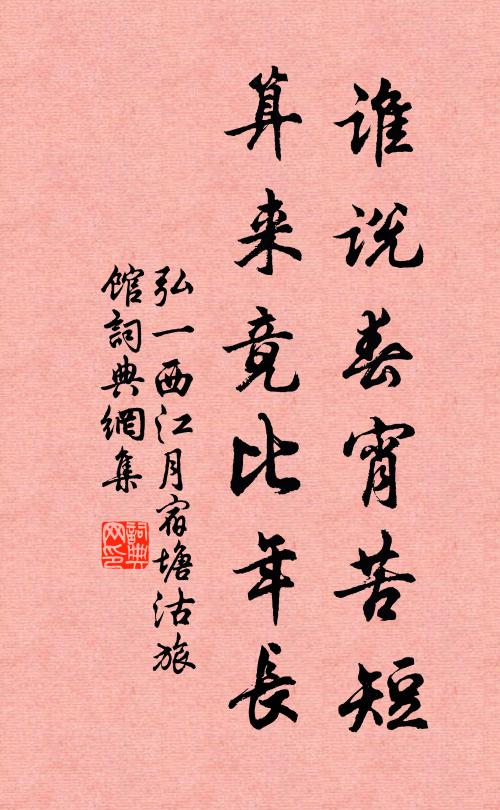 谁说春宵苦短
算来竟比年长
弘一西江月宿塘沽旅
馆詞典網集
詞典网印